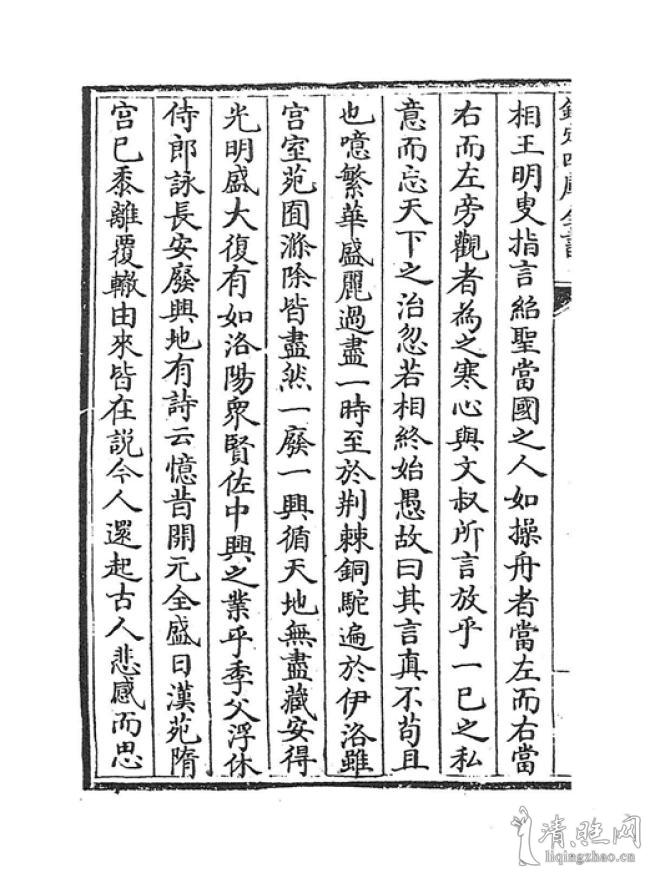 欽定四庫全書
相王明叟指言紹聖當國之人如操舟者當左而右當
右而左旁觀者為之寒心與文叔所言放乎一已之私
意而忘天下之治忽若相終始愚故曰其言真不苟且
也噫繁華盛麗過盡一時至於荆棘銅駝遍於伊洛雖
宫室苑囿滌除皆盡然一廢一興循天地無盡藏安得
光明盛大復有如洛陽衆賢佐中興之業乎季父浮休
侍郎詠長安廢興地有詩云憶昔開元全盛日漢苑隋
宫已黍離覆轍由來皆在説今人還起古人悲感而思
清照网
liqingzhao.cn